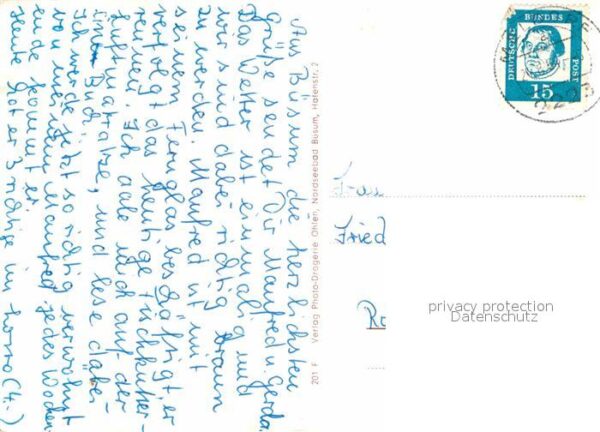 Aus Büsum die herzlichsten
Grüße sendet Dir Manfred u. Gerda.
Das Wetter ist einmalig und
wir sind dabei richtig braun
zu werden. Manfred ist mit
seinem Fernglas beschäftigt er
verfolgt das heutige Fischkutter-
rennen. Ich aale mich auf der
Luftmatratze, und lese dabei
ein Buch.
Ich werde jetzt so richtig verwöhnt
von meinem Manfred, jedes Wochen-
ende kommt er
Heute hat er 3 richtige im Lotto (4.-)
201 F Verlag Photo-Drogerie Ohlen, Nordseebad Büsum, Hafenstr. 2
DEUTSCHE BUNDES POST
15
Frau
Fried
privacy protection
Datenschutz